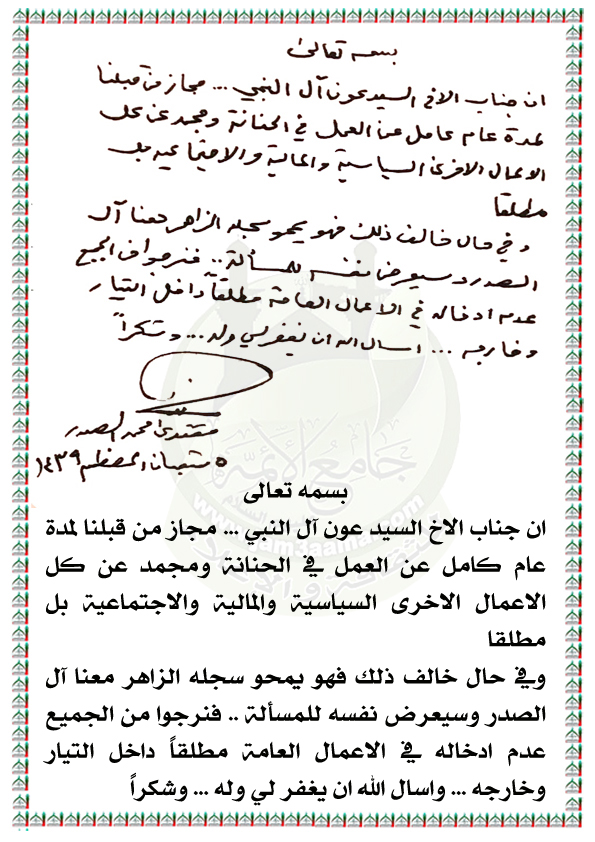 بسمه تعالى
ان جناب الاخ السيد عون آل النبي ... مجاز من قبلنا
لمدة عام كامل عن العمل في الحنانة ومجمد عن كل
الاعمال الاخرى السياسية والمالية والاجتماعية بل
مطلقا
وفي حال خالف ذلك فهو يمحو سجله الزاهر معنا آل
الصدر وسيعرض نفسه للمسألة .. فنرجوا من الجميع
عدم ادخاله في الاعمال العامة مطلقاً داخل التيار
وخارجه ... اسال الله ان يغفر لي وله ... وشكراً
مقتدى محمد الصدر
٥ شعبان المعظم ١٤٣٩
جامع الأئمة
بسمه تعالى
ان جناب الاخ السيد عون آل النبي ... مجاز من قبلنا لمدة
عام كامل عن العمل في الحنانة ومجمد عن كل
الاعمال الاخرى السياسية والمالية والاجتماعية بل
مطلقا
وفي حال خالف ذلك فهو يمحو سجله الزاهر معنا آل
الصدر وسيعرض نفسه للمسألة .. فنرجوا من الجميع
عدم ادخاله في الاعمال العامة مطلقاً داخل التيار
وخارجه ... واسال الله ان يغفر لي وله ... وشكراً